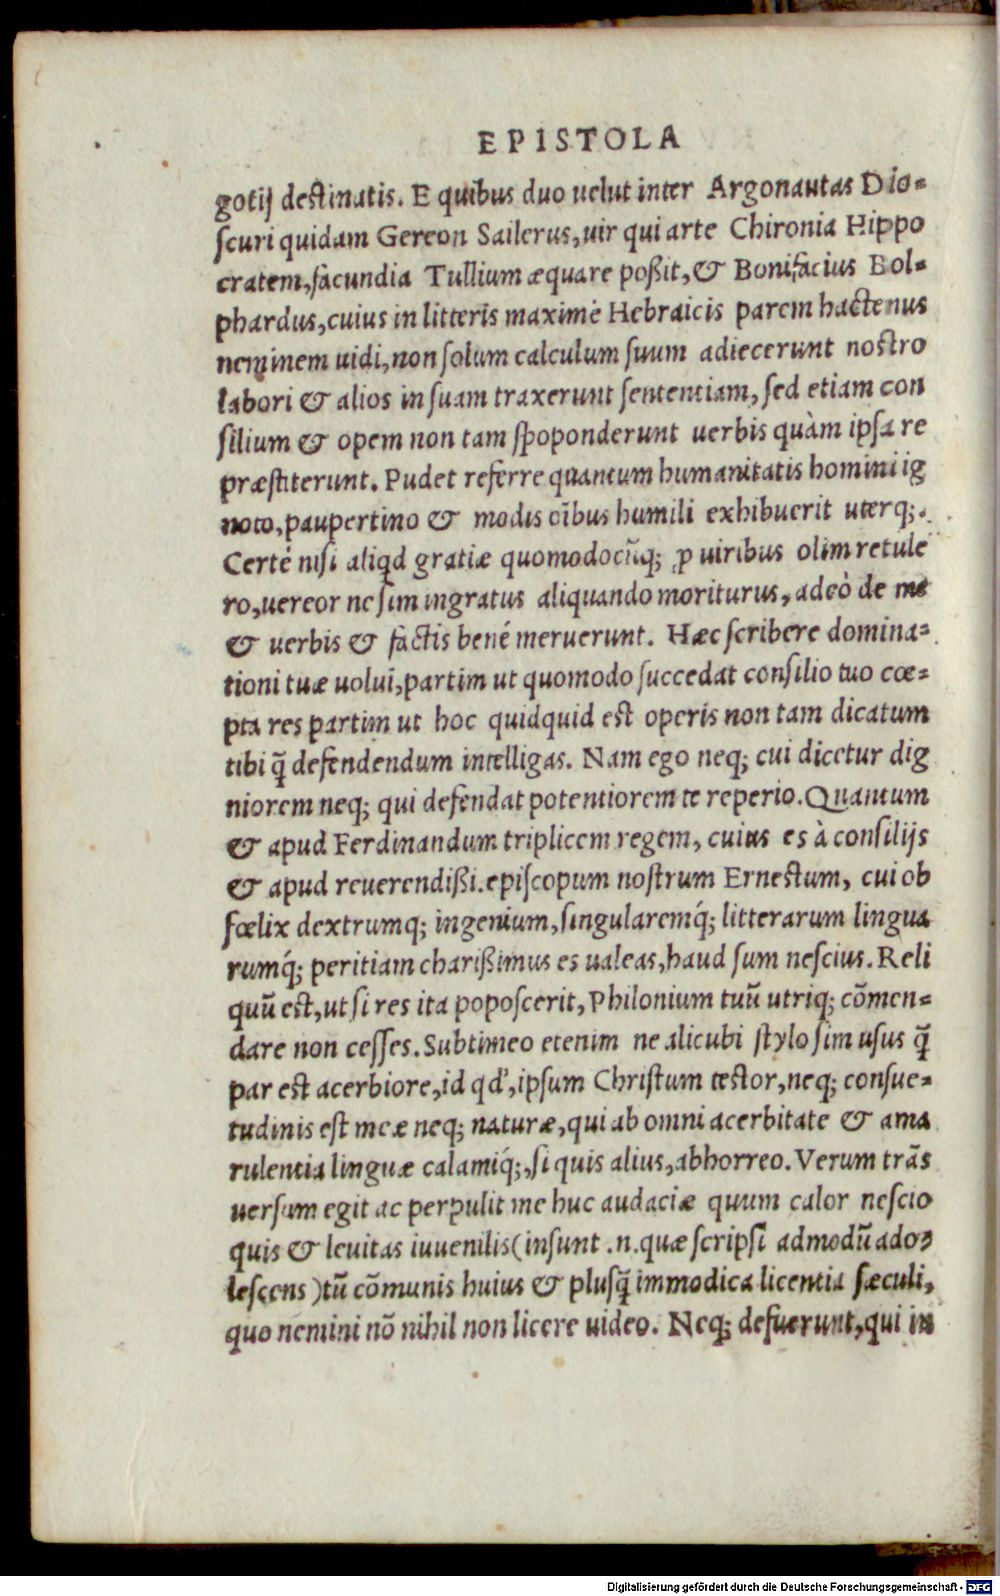 EPISTOLA
gotij destinatis. E quibus duo uelut inter Argonautas Dio-
scuri quidam Gereon Sailerus, uir qui arte Chironia Hippo
cratem, facundia Tullium æquare poßit, & Bonifacius Bol-
phardus, cuius in litteris maximè Hebraicis parem hactenus
neminem uidi, non solum calculum suum adiecerunt nostro
labori & alios in suam traxerunt sententiam, sed etiam con
silium & opem non tam spoponderunt uerbis quàm ipsa re
præstiterunt. Pudet referre quantum humanitatis homini ig
noto, paupertino & modis oĩbus humili exhibuerit uterq;.
Certè nisi aliqd gratiæ quomodocũq; ꝓ uiribus olim retule
ro, uereor ne sim ingratus aliquando moriturus, adeò de me
& uerbis & factis bené meruerunt. Hæc scribere domina-
tioni tuæ uolui, partim ut quomodo succedat consilio tuo cœ-
pta res partim ut hoc quidquid est operis non tam dicatum
tibi q̃ defendendum intelligas. Nam ego neq; cui dicetur dig
niorem neq; qui defendat potentiorem te reperio. Quantum
& apud Ferdinandum triplicem regem, cuius es à consilijs
& apud reuerendißi. episcopum nostrum Ernestum, cui ob
fœlix dextrumq; ingenium, singularemq́; litterarum lingua
rumq́; peritiam charißimus es ualeas, haud sum nescius. Reli
quũ est, ut si res ita poposcerit, Philonium tuũ utriq; cõmen-
dare non cesses. Subtimeo etenim ne alicubi stylo sim usus q̃
par est acerbiore, id qd', ipsum Christum testor, neq; consue-
tudinis est meæ neq; naturæ, qui ab omni acerbitate & ama
rulentia linguæ calamiq́;, si quis alius, abhorreo. Verum trãs
uersum egit ac perpulit me huc audaciæ quum calor nescio
quis & leuitas iuuenilis (insunt .n. quæ scripsi admodũ ado-
lescens) tũ cõmunis huius & plusq̃ immodica licentia sæculi,
quo nemini nõ nihil non licere uideo. Neq; defuerunt, qui in
Digitalisierung gefördert durch die Deutsche Forschungsgemeinschaft - DFG